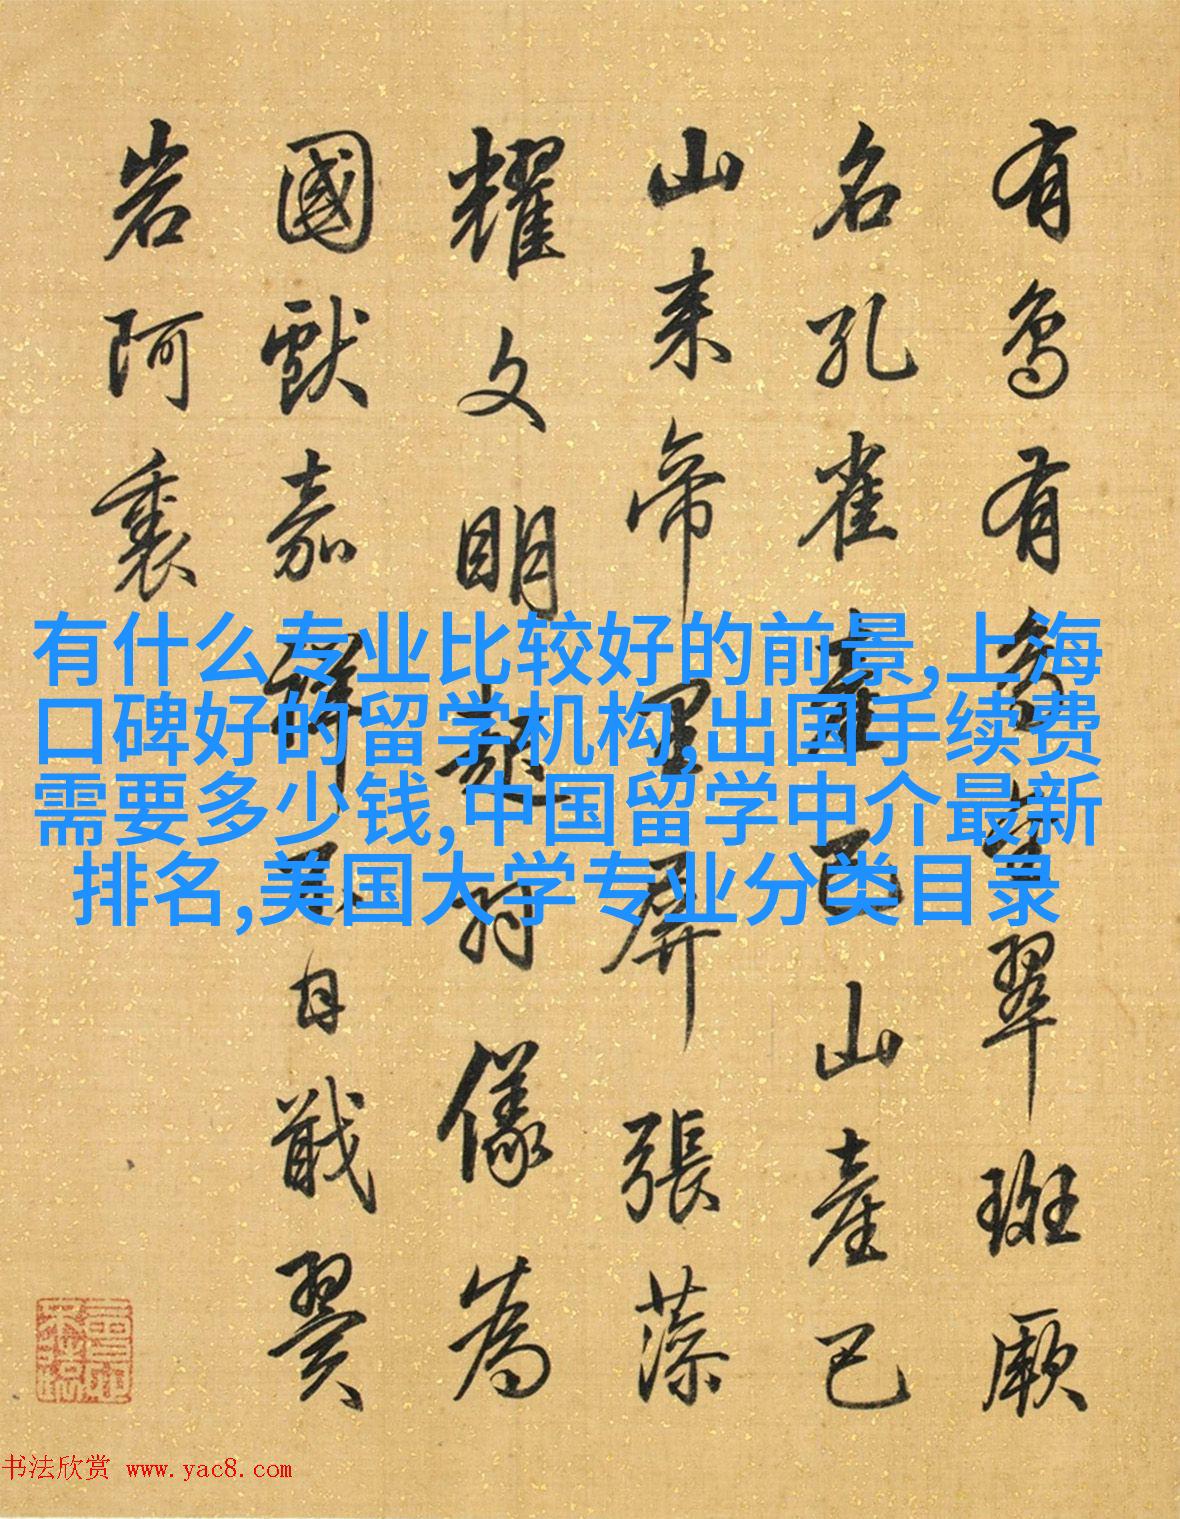 有鸟有文翠斑厥
名孔雀产巴山产巴
山来帝里屏張藻
耀文明起羽儀為
國獻嘉祥日戢翼
岩阿裏
有什么专业比较好的前景,上海
口碑好的留学机构,出国手续费
需要多少钱,中国留学中介最新
排名,美国大学专业分类目录
书法欣赏 www.yac8.com